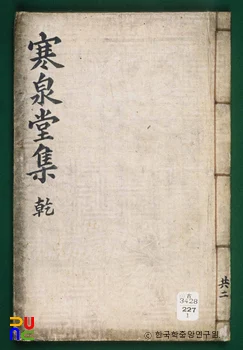 寒泉堂集
乾
共二
3428
227
1
한국학중앙연구원